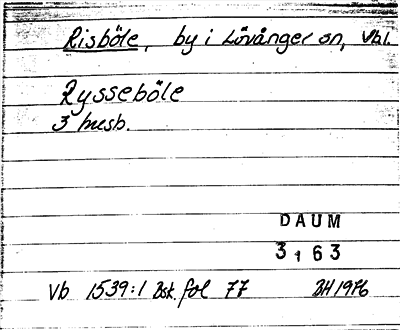 Risböle, by i Lövånger sn, Vbl.
Rysseböle
3 husb.
DAUM
3163
Vb 1539:1 Bsk. fol 77 BH 1976